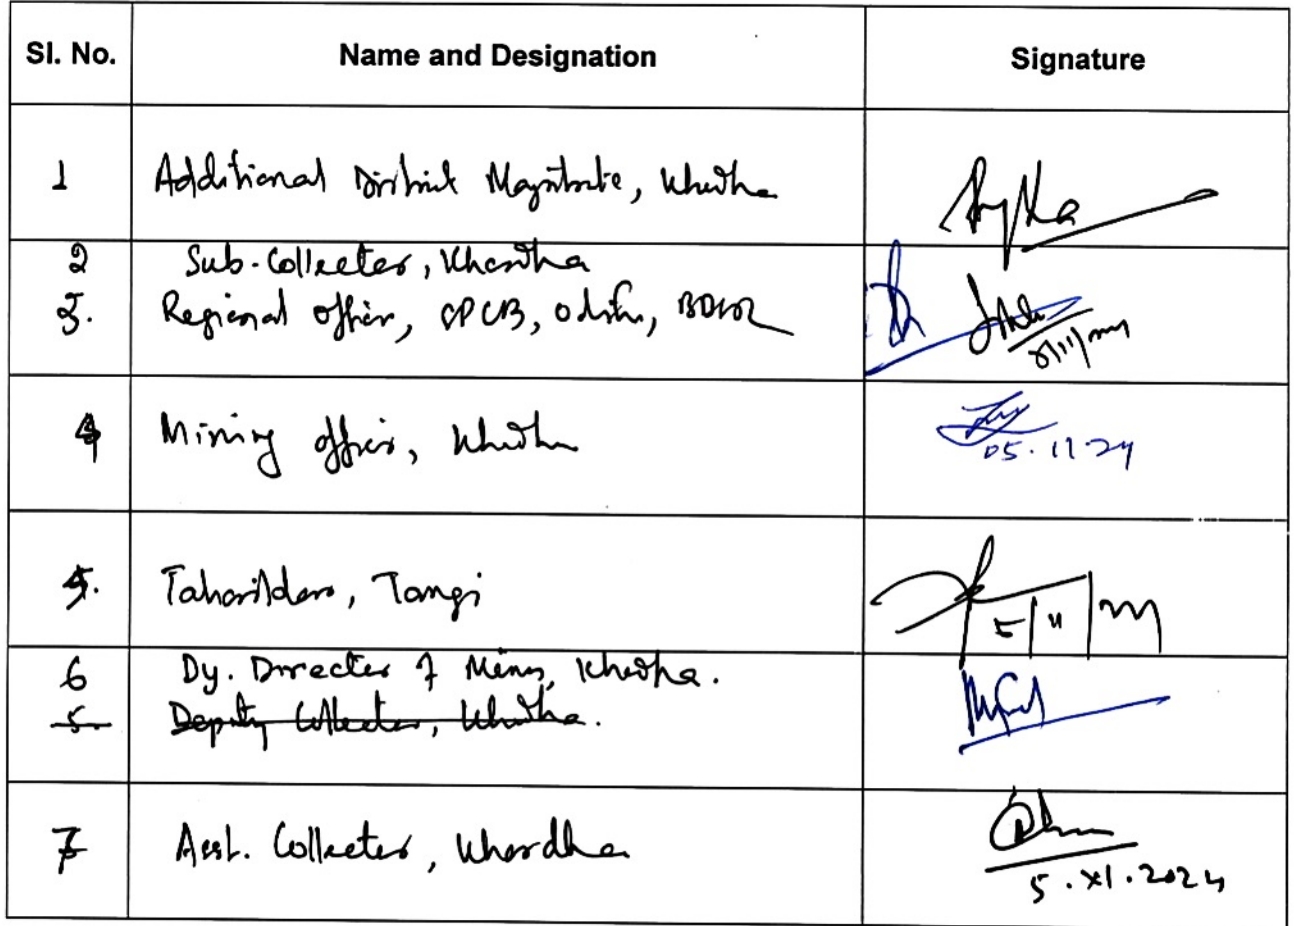 Sl. No. Name and Designation Signature
1 Additional District Magistrate, Khordha
2 Sub-Collector, Khordha
3. Regional Officer, SPCB, Odisha, BBSR
4 Mining Officer, Khordha
05.11.24
5. Tahasildar, Tangi
5/11
6 Dy. Director of Mines, Khordha.
5. Deputy Collector, Khordha.
7 Asst. Collector, Khordha
5.XI.2024